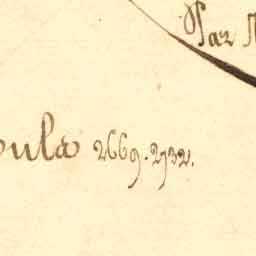 Par
oula 2669. 2732.